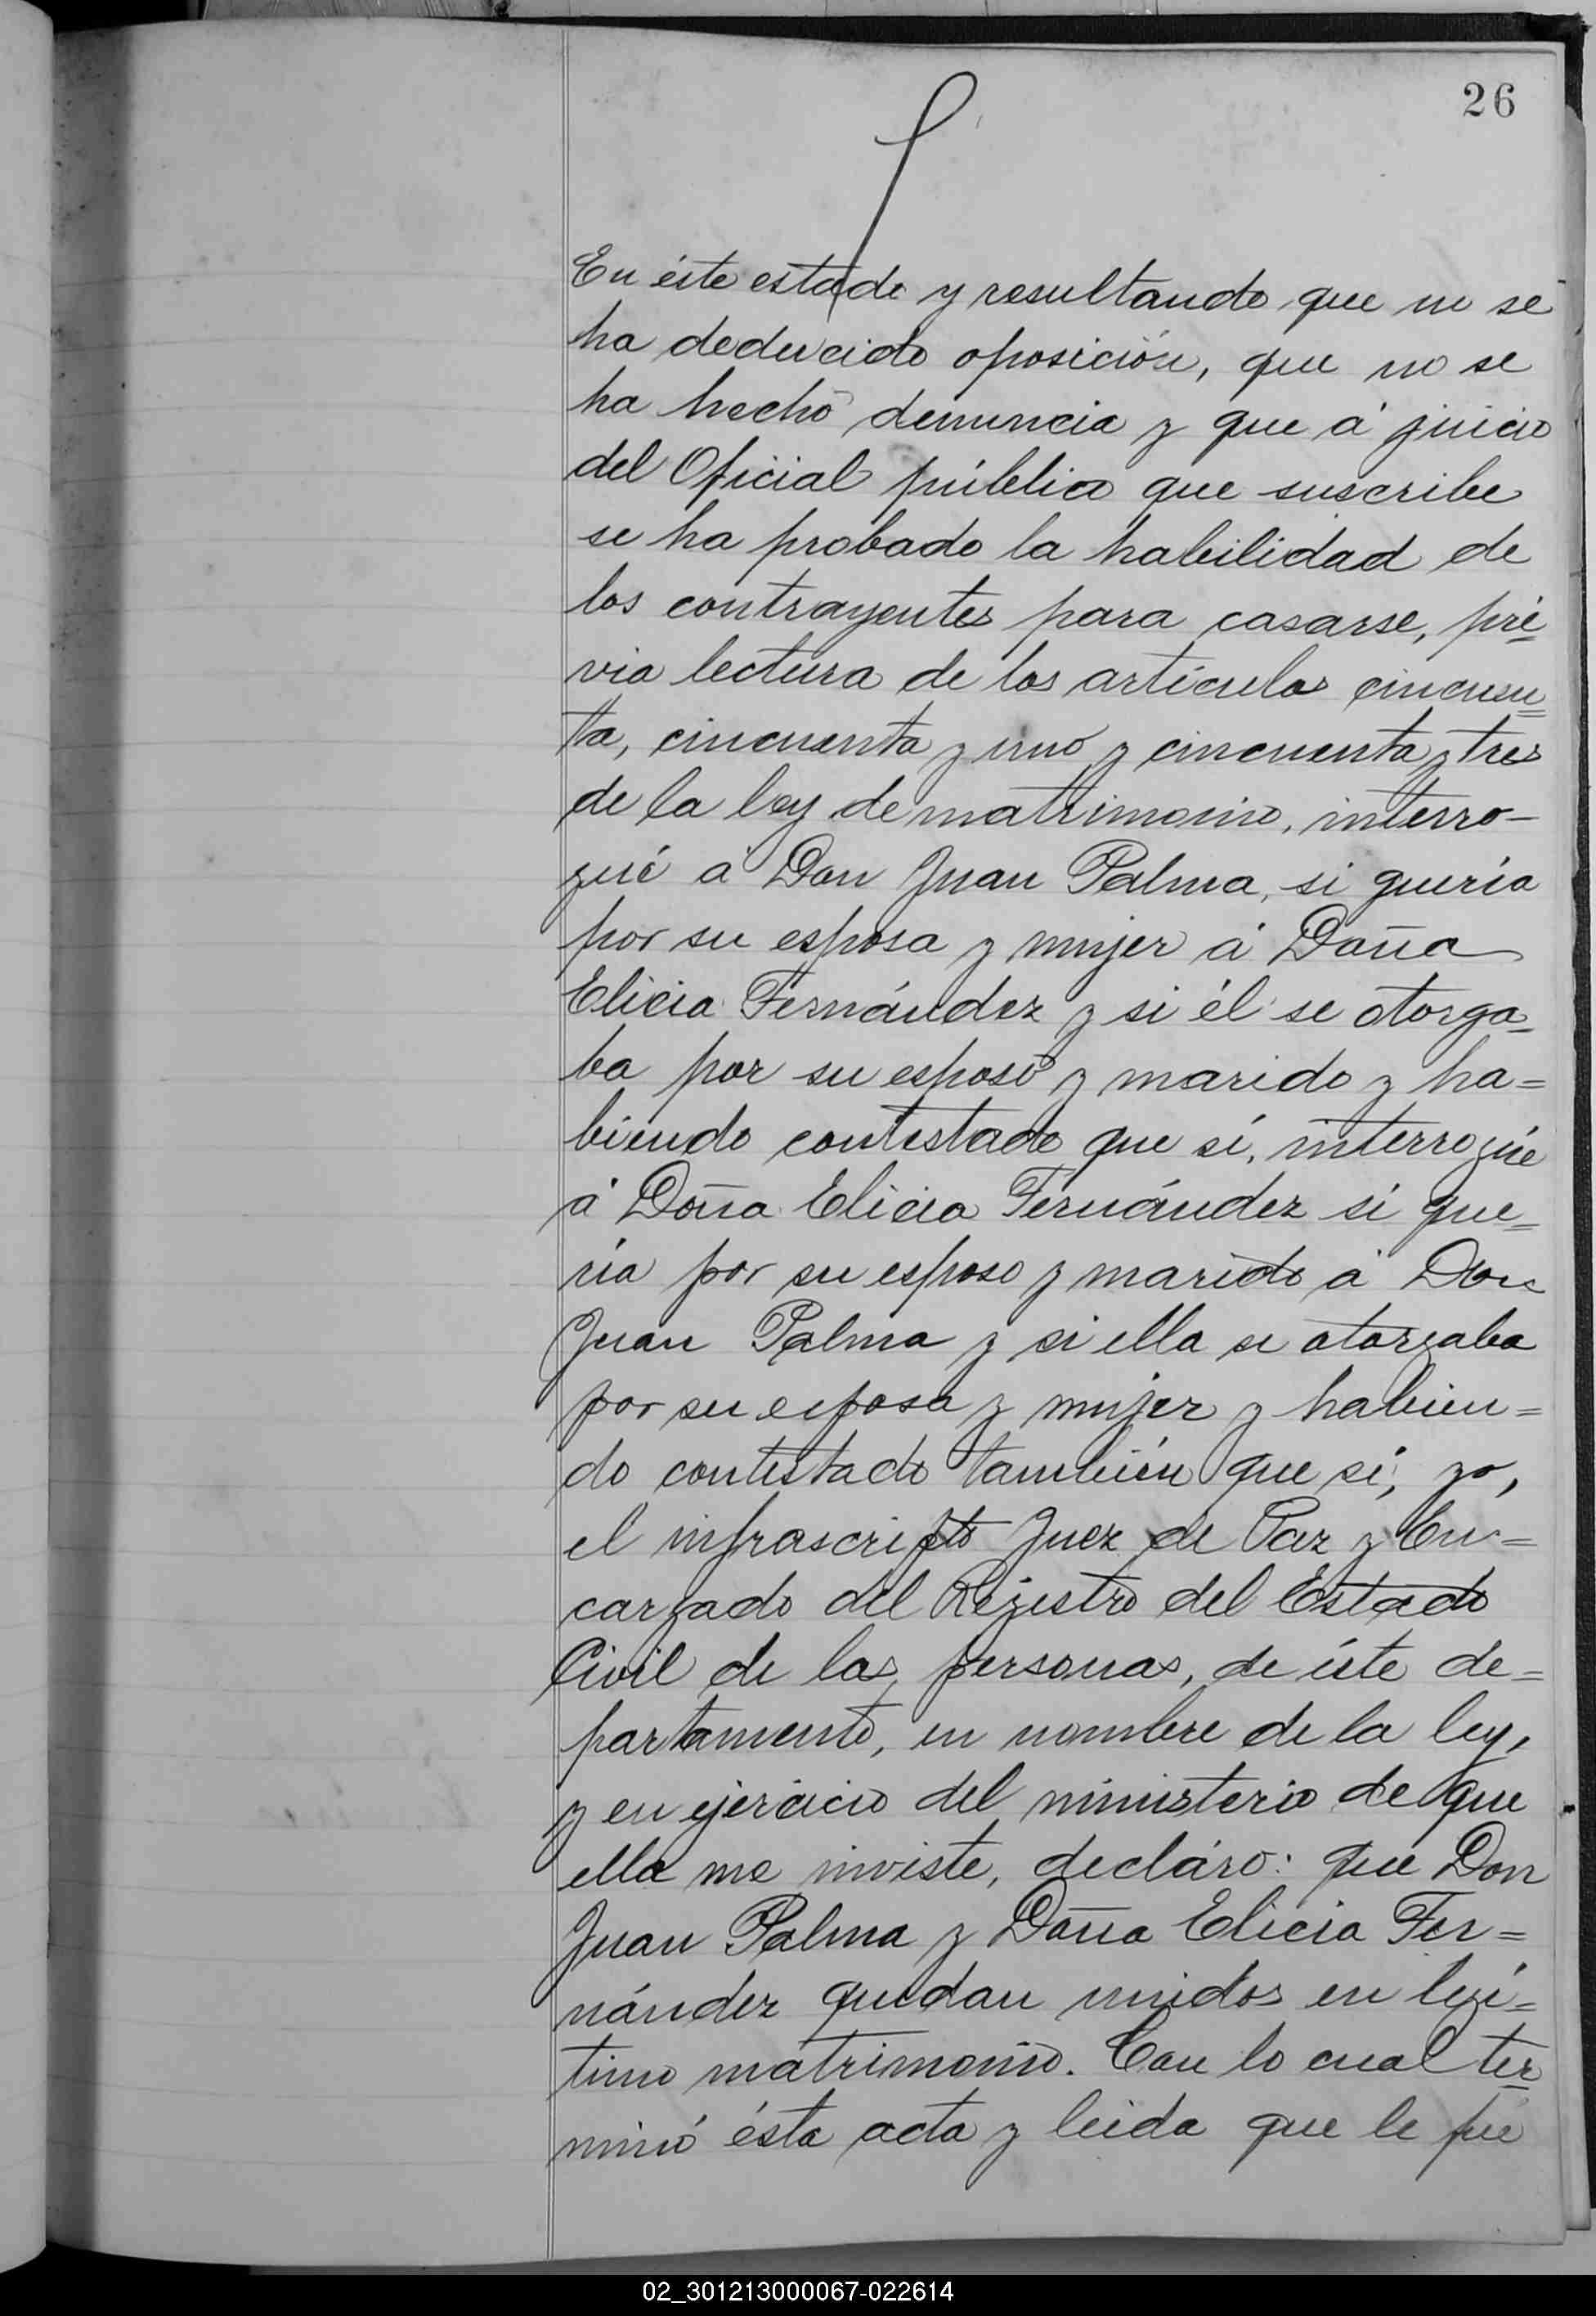 26
En éste estado y resultando que no se
ha deducido oposición, que no se
ha hecho denuncia y que á juicio
del Oficial público que suscribe
se ha probado la habilidad de
los contrayentes para casarse, pré-
via lectura de los artículos cincuen=
ta, cincuenta y uno y cincuenta y tres
de la ley de matrimonio, interro-
gué á Don Juan Palma, si quería
por su esposa y mujer á Doña
Elicia Fernández y si él se otorga-
ba por su esposo y marido y ha=
biendo contestado que sí, interrogué
á Doña Elicia Fernández si que=
ría por su esposo y marido á Don
Juan Palma y si ella se otorgaba
por su esposa y mujer y habien=
do contestado también que sí, yo,
el infrascripto Juez de Paz y En=
cargado del Rejistro del Estado
Civil de las personas, de éste de=
partamento, en nombre de la ley,
y en ejercicio del ministerio de que
ella me inviste, decláro: que Don
Juan Palma y Doña Elicia Fer=
nández quedan unidos en lejí=
timo matrimonio. Con lo cual ter-
minó ésta acta y leida que le fué
02_301213000067-022614